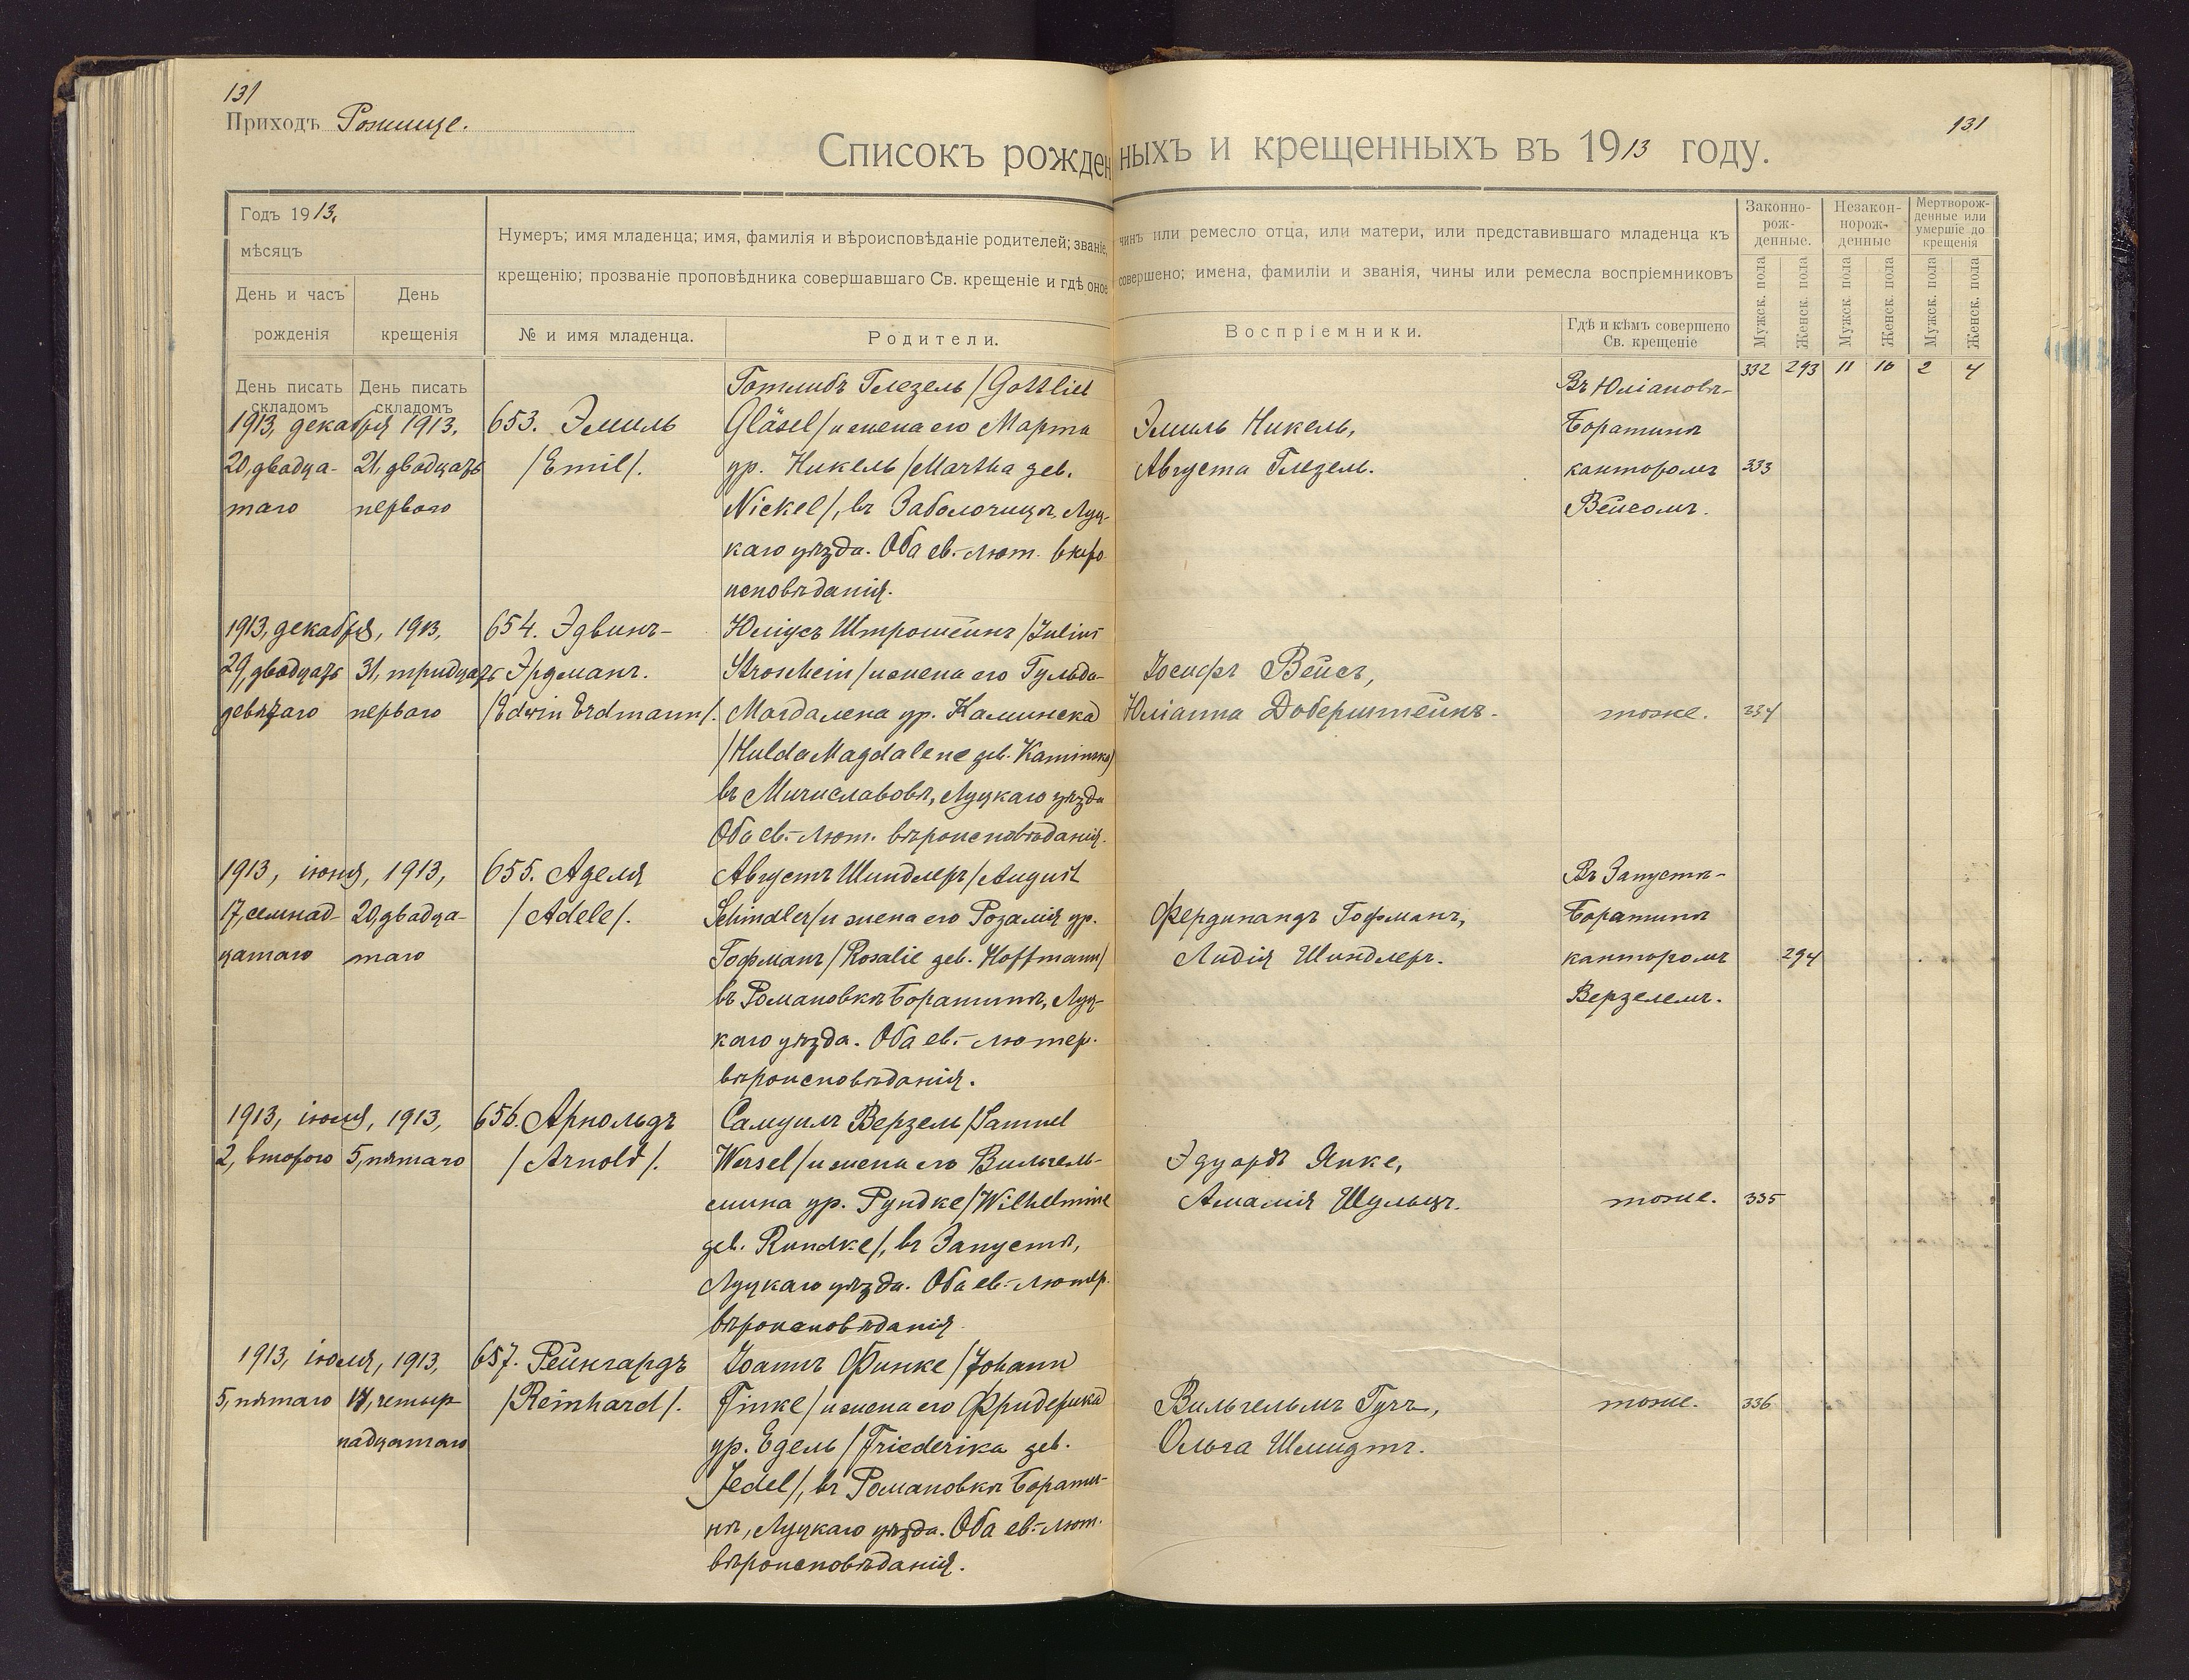 131
Приходъ Рожище.
131
Списокъ рожденныхъ и крещенныхъ въ 1913 году.
Годъ 1913,
мѣсяцъ
День и часъ рожденія
День крещенія
Нумеръ; имя младенца; имя, фамилія и вѣроисповѣданіе родителей; званіе, чинъ или ремесло отца, или матери, или представившаго младенца къ
крещенію; прозваніе проповѣдника совершавшаго Св. крещеніе и гдѣ оное совершено; имена, фамиліи и званія, чины или ремесла воспріемниковъ
№ и имя младенца.
Родители.
Воспріемники.
Гдѣ и кѣмъ совершено
Св. крещеніе
Законно-
рож-
денные.
Незакон-
норож-
денные
Мертворож-
денные или
умершіе до
крещенія
Мужск. пола
Женск. пола
Мужск. пола
Женск. пола
Мужск. пола
Женск. пола
День писать
складомъ
День писать
складомъ
332 293 11 16 2 4
1913, декабря 1913,
20, двадца-
таго
21, двадцать
перваго
653. Эмиль
/Emil/.
Готлибъ Глезель /Gottlieb
Gläsel/ и жена его Марта
ур. Никель /Martha geb.
Nickel/, въ Заболочицѣ, Луц-
каго уѣзда. Оба ев.-лют. вѣро
исповѣданія.
Эмиль Никель,
Августа Глезель.
Въ Юліановѣ-
Боратинѣ
канторомъ
Вейсомъ.
333
1913, декабря, 1913,
29, двадцать
девятаго
31, тридцать
перваго
654. Эдвинъ-
Эрдманъ.
/Edwin Erdmann/.
Юліусъ Штрошейнъ /Julius
Stroschein/ и жена его Гульда-
Магдалена ур. Каминска
/Hulda Magdalene geb. Kaminska/
въ Мичиславовѣ, Луцкаго уѣзда
Оба ев.-лют. вѣроисповѣданія.
Іосифъ Вейсъ,
Юліанна Доберштейнъ.
тоже.
334
1913, іюня, 1913,
17, семнад-
цатаго
20, двадца-
таго
655. Аделя
/Adele/.
Августъ Шиндлеръ /August
Schindler/ и жена его Розалія ур.
Гофманъ /Rosalie geb. Hoffmann/
въ Романовкѣ Боратинѣ, Луц-
каго уѣзда. Оба ев.-лютер.
вѣроисповѣданія.
Фердинандъ Гофманъ,
Лидія Шиндлеръ.
Въ Запустѣ-
Боратинѣ
канторомъ
Верзелемъ.
294
1913, іюля, 1913,
2, второго
5, пятаго
656. Арнольдъ
/Arnold/.
Самуилъ Верзель /Samuel
Wersel/ и жена его Вильгель-
мина ур. Рундке /Wilhelmine
geb. Rundke/, въ Запустѣ,
Луцкаго уѣзда. Оба ев.-лютер.
вѣроисповѣданія.
Эдуардъ Янке,
Амалія Шульцъ.
тоже.
335
1913, іюля, 1913,
5, пятаго
14, четыр
надцатаго
657. Рейнгардъ
/Reinhard/.
Іоаннъ Финке /Johann
Finke/ и жена его Фридерика
ур. Едель /Friederika geb.
Jedel/, въ Романовкѣ Борати-
нѣ, Луцкаго уѣзда. Оба ев.-лют.
вѣроисповѣданія.
Вильгельмъ Гучъ,
Ольга Шмидтъ.
тоже.
336